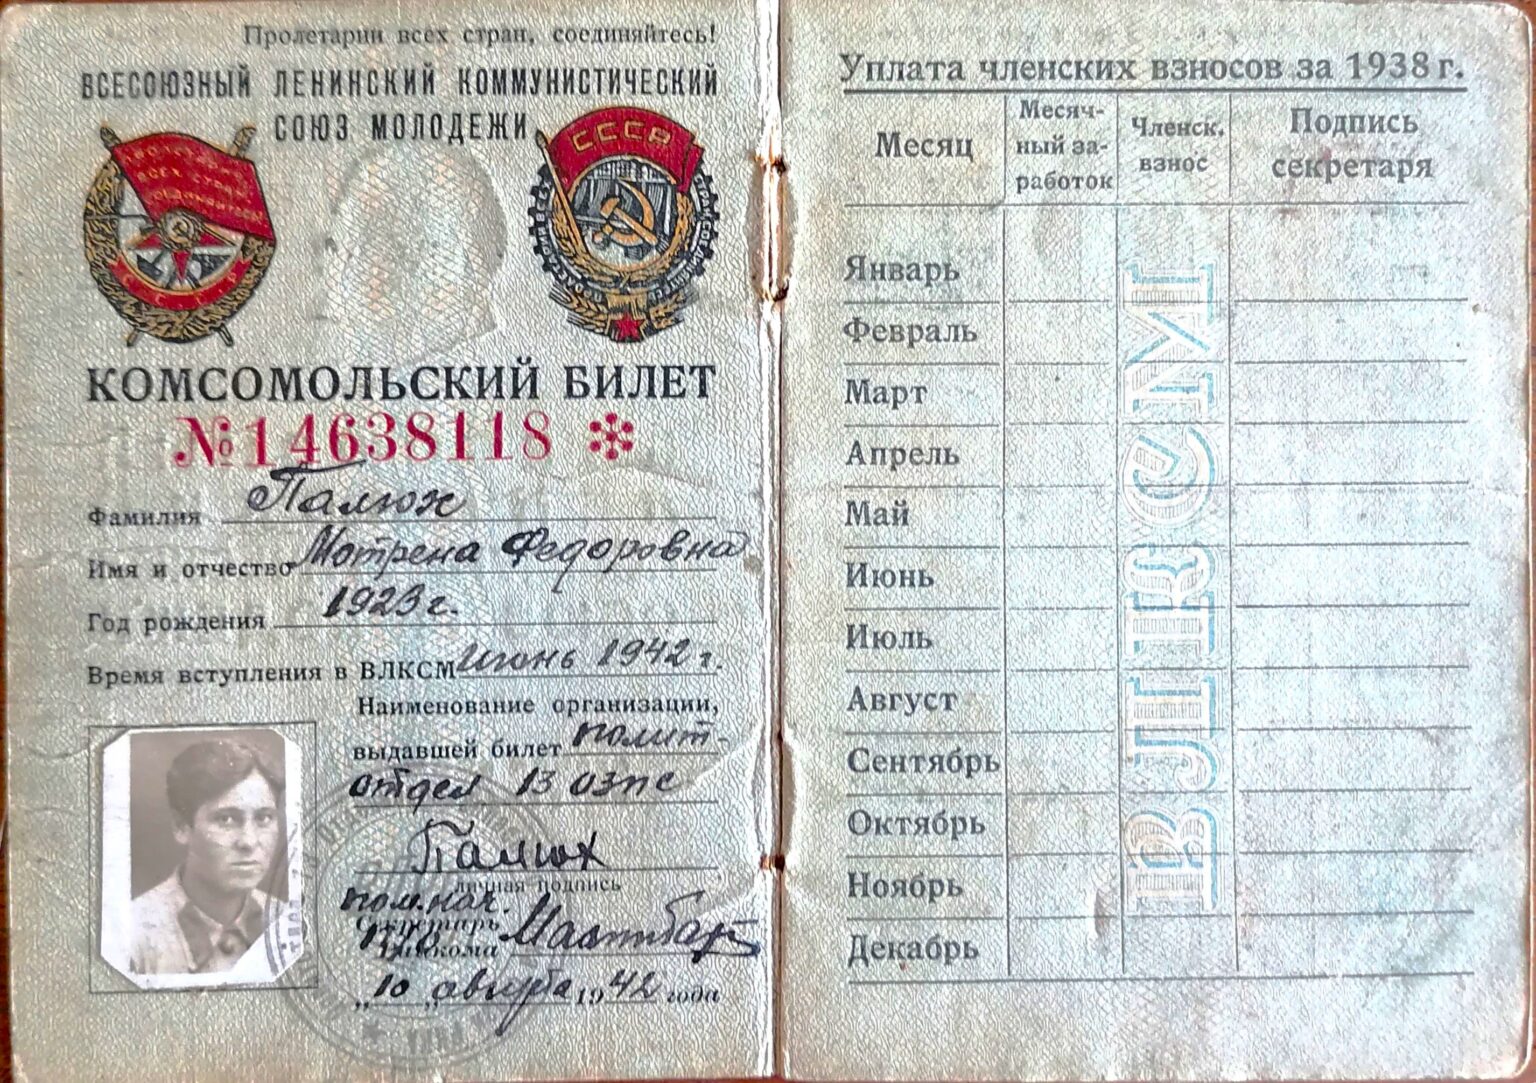 Пролетарии всех стран, соединяйтесь!
ВСЕСОЮЗНЫЙ ЛЕНИНСКИЙ КОММУНИСТИЧЕСКИЙ
СОЮЗ МОЛОДЕЖИ
СССР
КОМСОМОЛЬСКИЙ БИЛЕТ
№14638118
Фамилия Палюх
Имя и отчество Мотрена Федоровна
Год рождения 1923 г.
Время вступления в ВЛКСМ Июнь 1942 г.
Наименование организации,
выдавшей билет полит-
отдел 13 озпс
Палюх
личная подпись
пом. нач.
Секретарь
"10" августа 1942 года
Уплата членских взносов за 1938 г.
Месяц
Месяч-
ный за-
работок
Членск.
взнос
Подпись
секретаря
Январь
Февраль
Март
Апрель
Май
Июнь
Июль
Август
Сентябрь
Октябрь
Ноябрь
Декабрь
ВЛКСМ